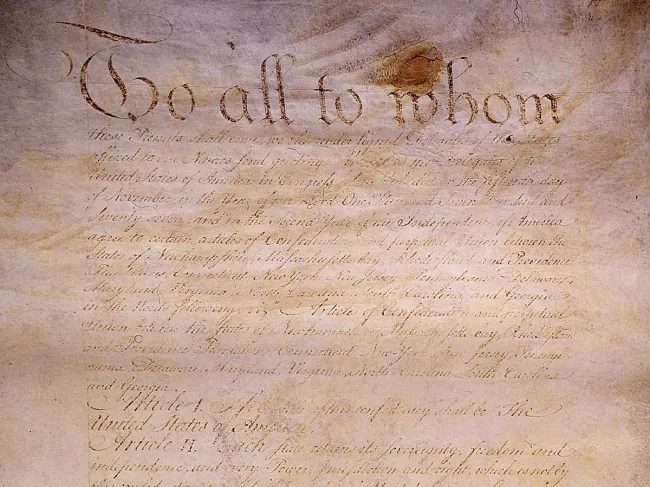 To all to whom
these Presents shall come, we the under signed Delegates of the States
affixed to our Names send greeting. Whereas the Delegates of the
United States of America in Congress assembled did on the fifteenth day
of November in the Year of our Lord One Thousand Seven Hundred and
Seventy seven, and in the Second Year of the Independence of America
agree to certain articles of Confederation and perpetual Union between the
States of Newhampshire, Massachusetts-bay, Rhodeisland and Providence
Plantations, Connecticut, New York, New Jersey, Pennsylvania, Delaware,
Maryland, Virginia, North-Carolina, South-Carolina, and Georgia
in the Words following, viz. Articles of Confederation and perpetual
Union between the States of Newhampshire, Massachusetts-bay, Rhodeisland
and Providence Plantations, Connecticut, New-York, New-Jersey, Pennsyl-
vania, Delaware, Maryland, Virginia, North-Carolina, South-Carolina
and Georgia.
Article I. The Stile of this confederacy shall be "The
United States of America."
Article II. Each state retains its sovereignty, freedom and
independence, and every Power, Jurisdiction and right, which is not by